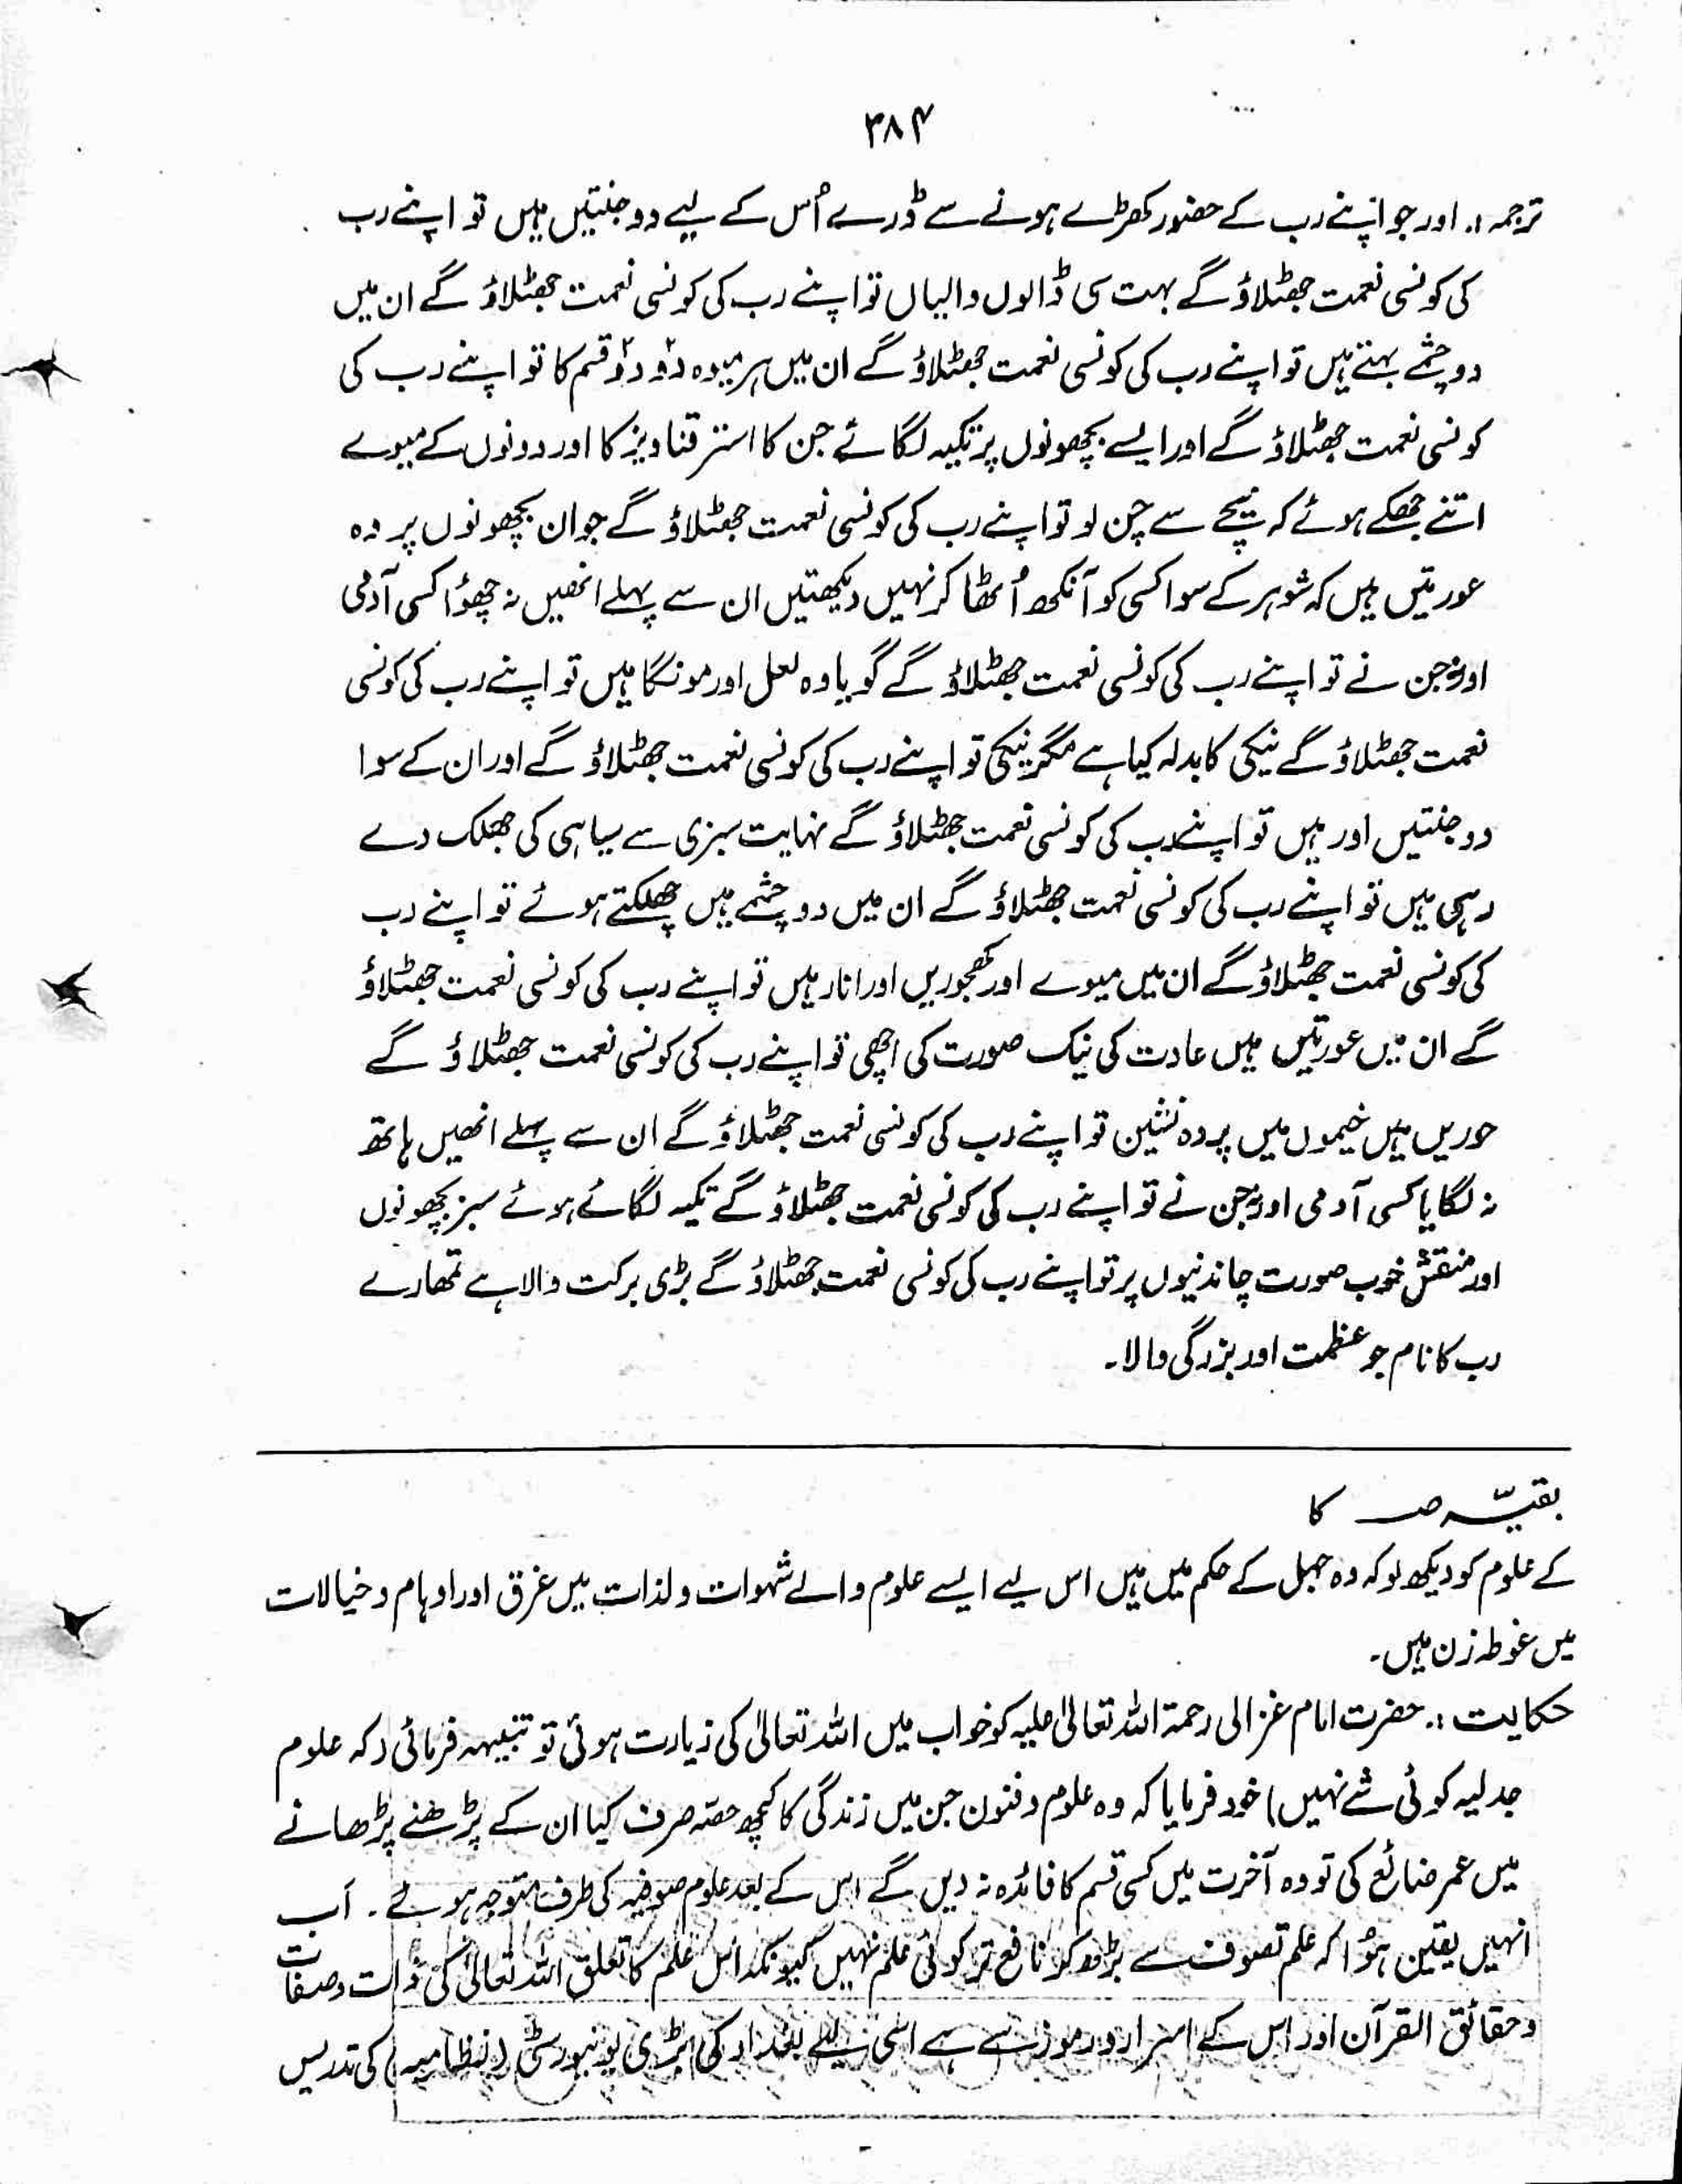 ۳۸۴
ترجمہ :۔ اور جو اپنے رب کے حضور کھڑے ہونے سے ڈرے اُس کے لیے دو جنتیں ہیں تو اپنے رب
کی کونسی نعمت جھٹلاؤ گے بہت سی ڈالوں والیاں تو اپنے رب کی کونسی نعمت جھٹلاؤ گے ان میں
دو چشمے بہتے ہیں تو اپنے رب کی کونسی نعمت جھٹلاؤ گے ان میں ہر میوہ دو دو قسم کا تو اپنے رب کی
کونسی نعمت جھٹلاؤ گے اور ایسے بچھونوں پر تکیہ لگائے جن کا استر قناویز کا اور دونوں کے میوے
اتنے جھکے ہوئے کہ نیچے سے چن لو تو اپنے رب کی کونسی نعمت جھٹلاؤ گے جو ان بچھونوں پر وہ
عورتیں ہیں کہ شوہر کے سوا کسی کو آنکھ اُٹھا کر نہیں دیکھتیں ان سے پہلے انھیں نہ چھؤا کسی آدمی
اور نہ جن نے تو اپنے رب کی کونسی نعمت جھٹلاؤ گے گویا وہ لعل اور مونگا ہیں تو اپنے رب کی کونسی
نعمت جھٹلاؤ گے نیکی کا بدلہ کیا ہے مگر نیکی تو اپنے رب کی کونسی نعمت جھٹلاؤ گے اور ان کے سوا
دو جنتیں اور ہیں تو اپنے رب کی کونسی نعمت جھٹلاؤ گے نہایت سبزی سے سیاہی کی جھلک دے
رہی ہیں تو اپنے رب کی کونسی نعمت جھٹلاؤ گے ان میں دو چشمے ہیں چھلکتے ہوئے تو اپنے رب
کی کونسی نعمت جھٹلاؤ گے ان میں میوے اور کھجوریں اور انار ہیں تو اپنے رب کی کونسی نعمت جھٹلاؤ
گے ان میں عورتیں ہیں عادت کی نیک صورت کی اچھی تو اپنے رب کی کونسی نعمت جھٹلاؤ گے
حوریں ہیں خیموں میں پردہ نشین تو اپنے رب کی کونسی نعمت جھٹلاؤ گے ان سے پہلے انھیں ہاتھ
نہ لگایا کسی آدمی اور نہ جن نے تو اپنے رب کی کونسی نعمت جھٹلاؤ گے تکیہ لگائے ہوئے سبز بچھونوں
اور منقش خوب صورت چاندنیوں پر تو اپنے رب کی کونسی نعمت جھٹلاؤ گے بڑی برکت والا ہے تمھارے
رب کا نام جو عظمت اور بزرگی والا۔
بقیہ صــ کا
کے علوم کو دیکھ لو کہ وہ جہل کے حکم میں ہیں اس لیے ایسے علوم والے شہوات و لذات میں غرق اور اوہام و خیالات
میں غوطہ زن ہیں۔
حکایت :۔ حضرت امام غزالی رحمۃ اللہ تعالیٰ علیہ کو خواب میں اللہ تعالیٰ کی زیارت ہوئی تو تنبیہہ فرمائی (کہ علوم
جدلیہ کوئی شے نہیں) خود فرمایا کہ وہ علوم و فنون جن میں زندگی کا کچھ حصہ صرف کیا ان کے پڑھنے پڑھانے
میں عمر ضائع کی تو وہ آخرت میں کسی قسم کا فائدہ نہ دیں گے اس کے بعد علوم صوفیہ کی طرف متوجہ ہوئے۔ اب
انہیں یقین ہؤا کہ علم تصوف سے بڑھ کر نافع تر کوئی علم نہیں کیونکہ اس علم کا تعلق اللہ تعالیٰ کی ذات و صفات
و حقائق القرآن اور اس کے اسرار و رموز سے ہے اسی لیے بغداد کی بڑی یونیورسٹی (نظامیہ) کی تدریس